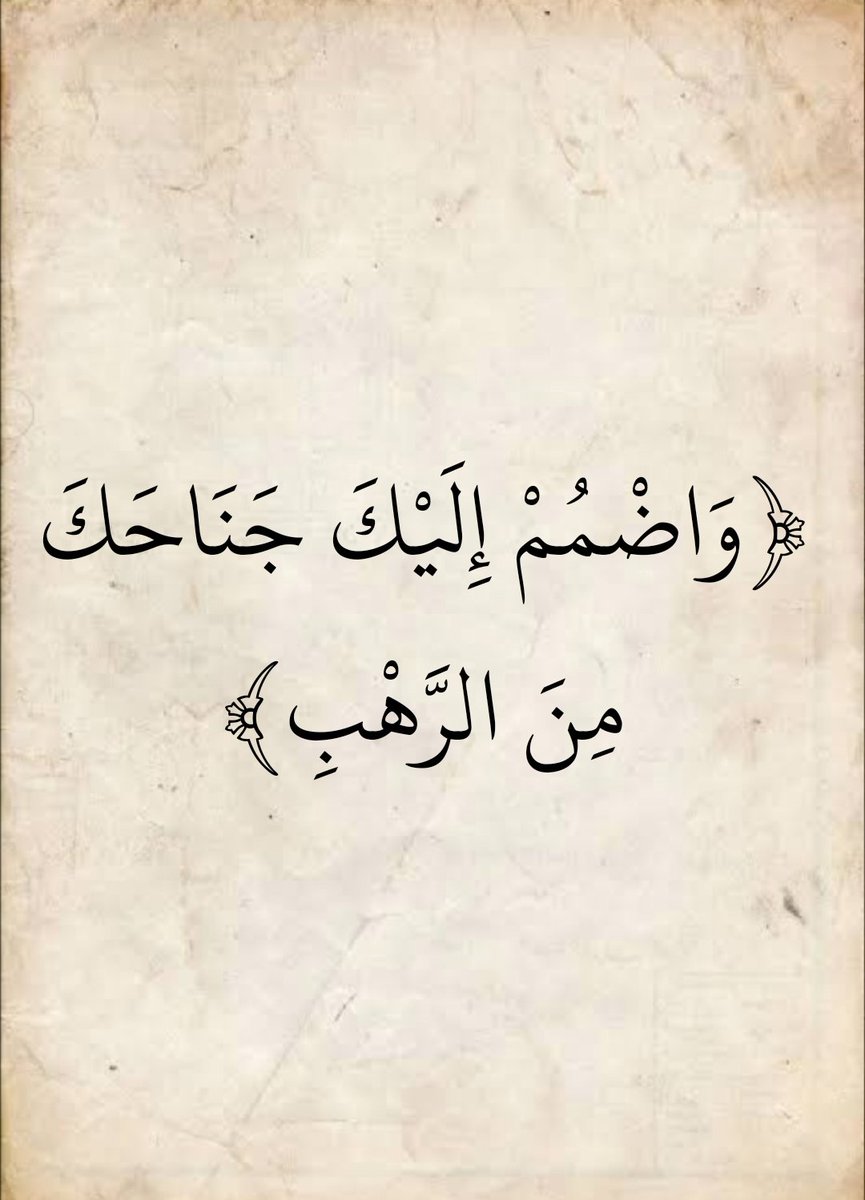 ﴿وَاضْمُمْ إِلَيْكَ جَنَاحَكَ
مِنَ الرَّهْبِ﴾